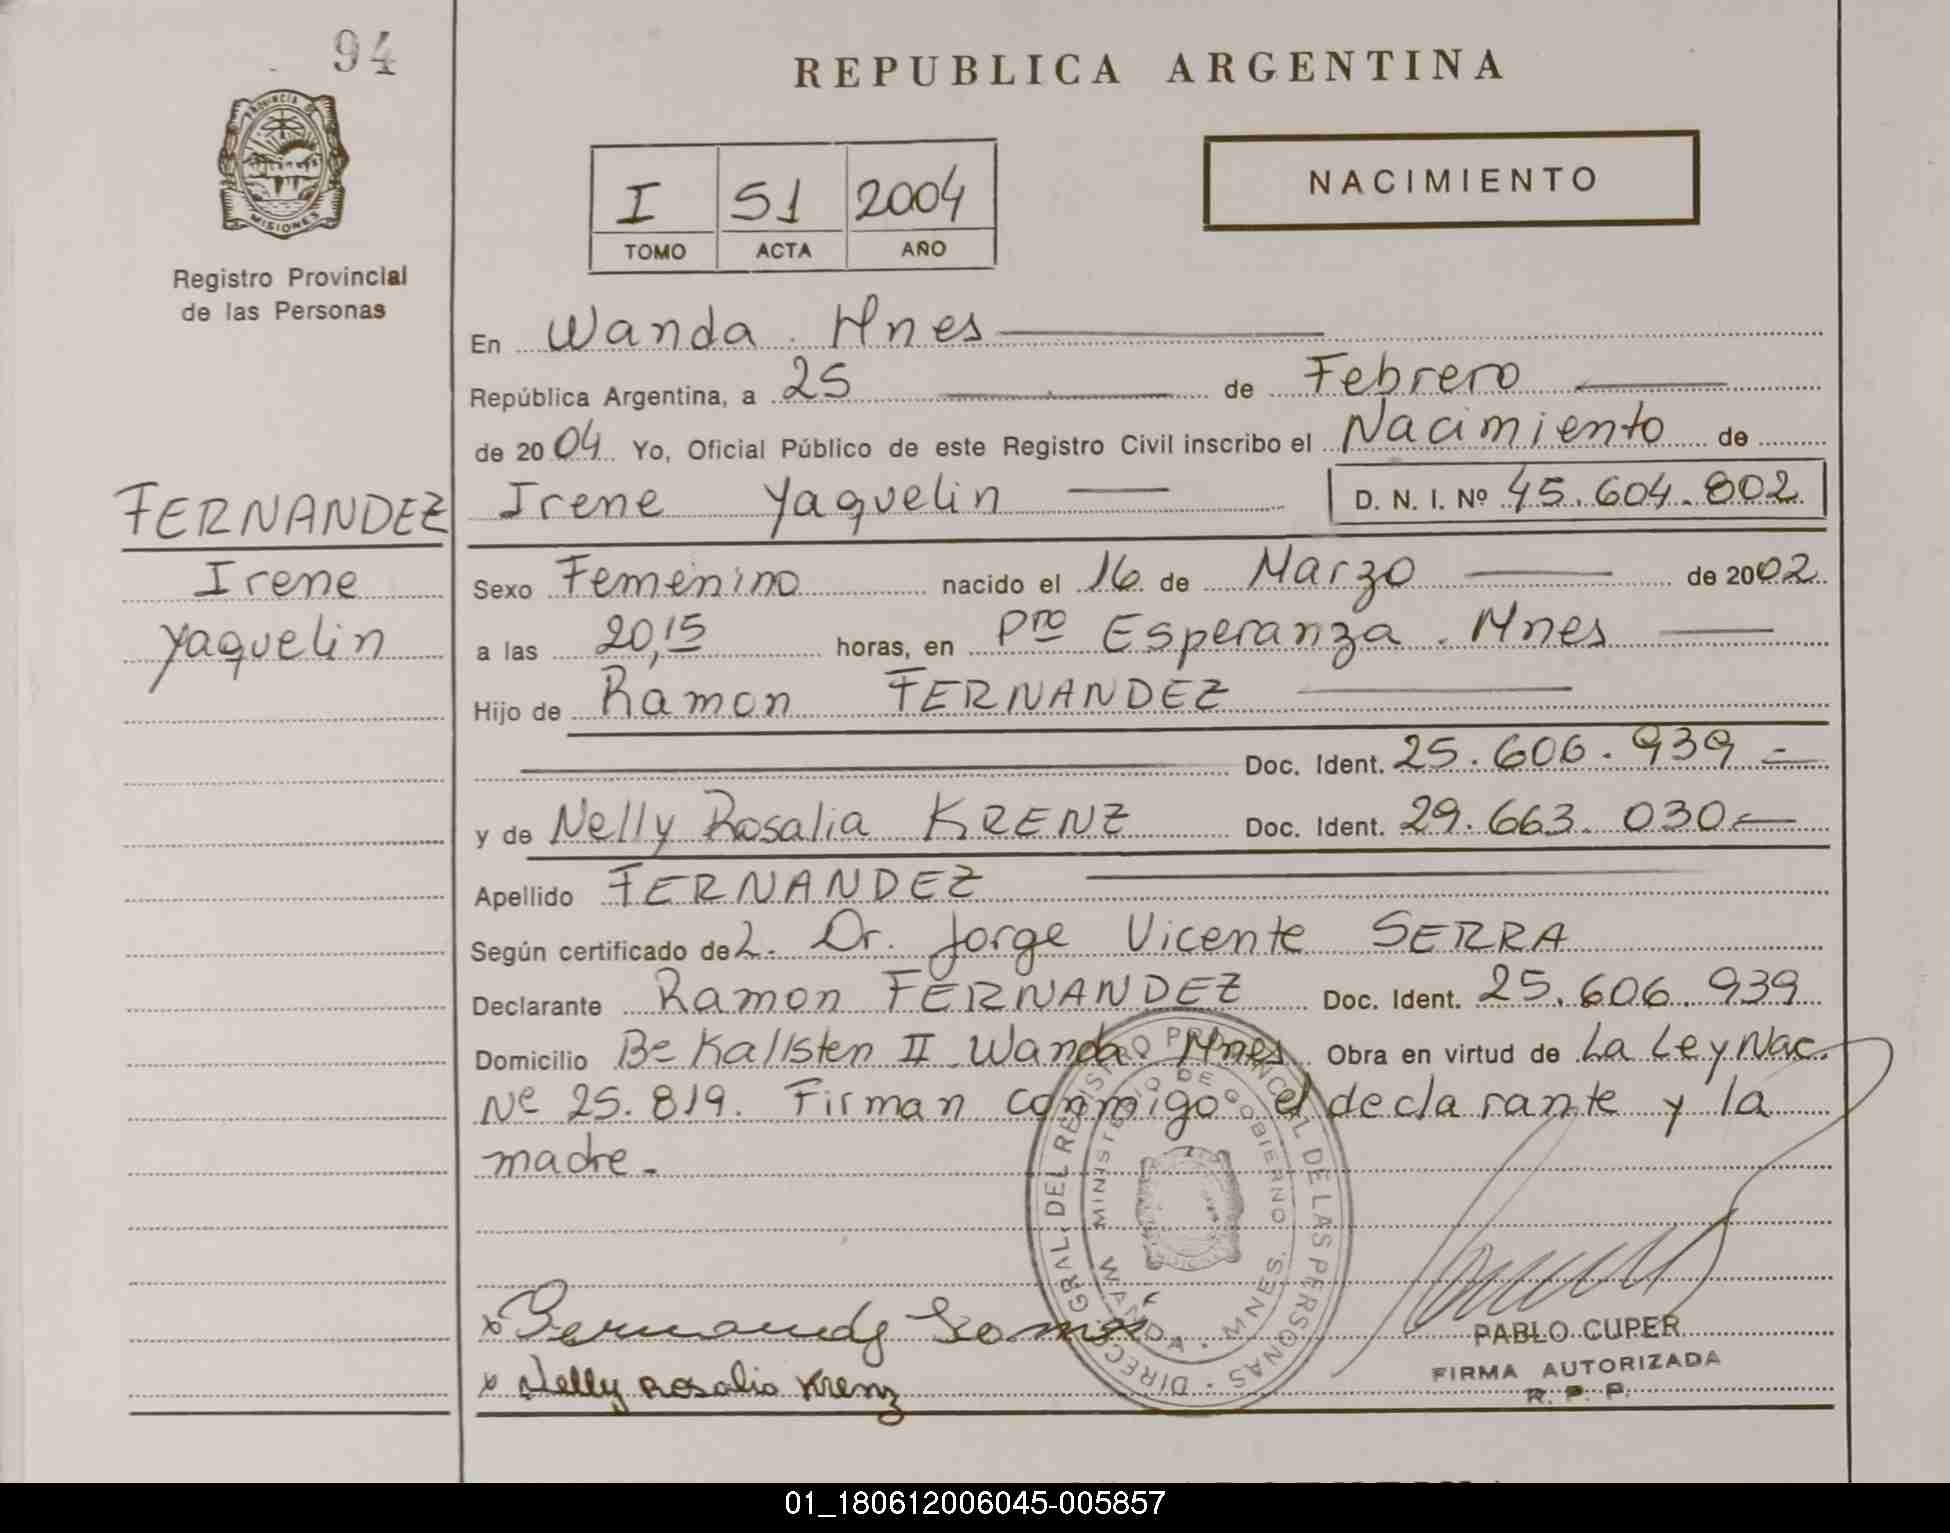 94
REPUBLICA ARGENTINA
PROVINCIA DE
MISIONES
Registro Provincial
de las Personas
I 51 2004
TOMO ACTA AÑO
NACIMIENTO
En Wanda. Mnes
República Argentina, a 25 de Febrero
de 2004 Yo, Oficial Público de este Registro Civil inscribo el Nacimiento de
FERNANDEZ
Irene
Yaquelin
Irene Yaquelin D. N. I. Nº 45.604.802
Sexo Femenino nacido el 16 de Marzo de 2002
a las 20,15 horas, en Pro Esperanza. Mnes
Hijo de Ramon FERNANDEZ
Doc. Ident. 25.606.939
y de Nelly Rosalia KRENZ Doc. Ident. 29.663.030
Apellido FERNANDEZ
Según certificado de L. Dr. Jorge Vicente SERRA
Declarante Ramon FERNANDEZ Doc. Ident. 25.606.939
Domicilio Bº Kallsten II Wanda. Mnes. Obra en virtud de La Ley Nac.
Nº 25.819. Firman conmigo el declarante y la
madre.
DIRECC. GRAL. DEL REGISTRO PROVINCIAL DE LAS PERSONAS
MINISTERIO DE GOBIERNO
WANDA. MNES.
x Nelly Rosalia Krenz
PABLO CUPER
FIRMA AUTORIZADA
R. P. P.
01_180612006045-005857